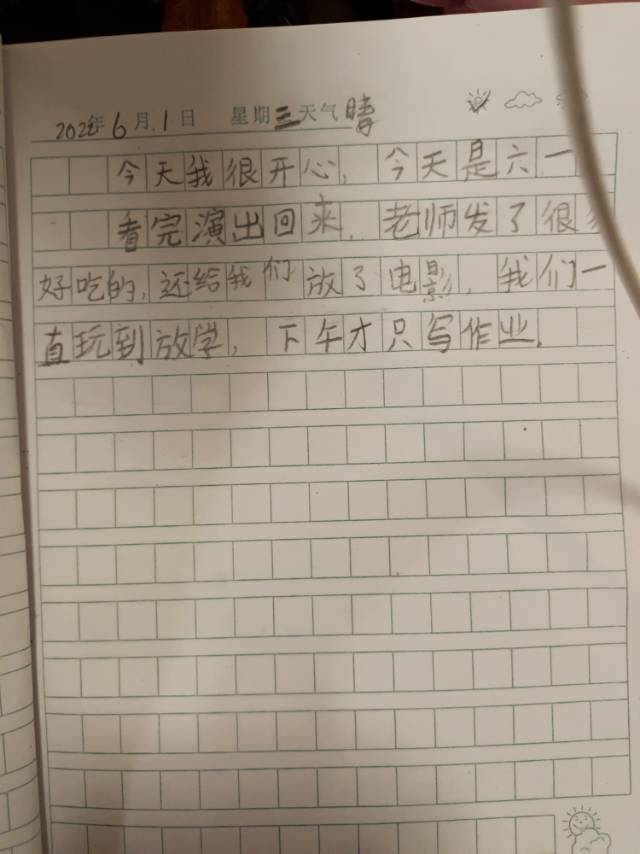 2022年6月1日 星期三天气晴
今天我很开心，今天是六一
看完演出回来，老师发了很多
好吃的，还给我们放了电影，我们一
直玩到放学，下午才只写作业．